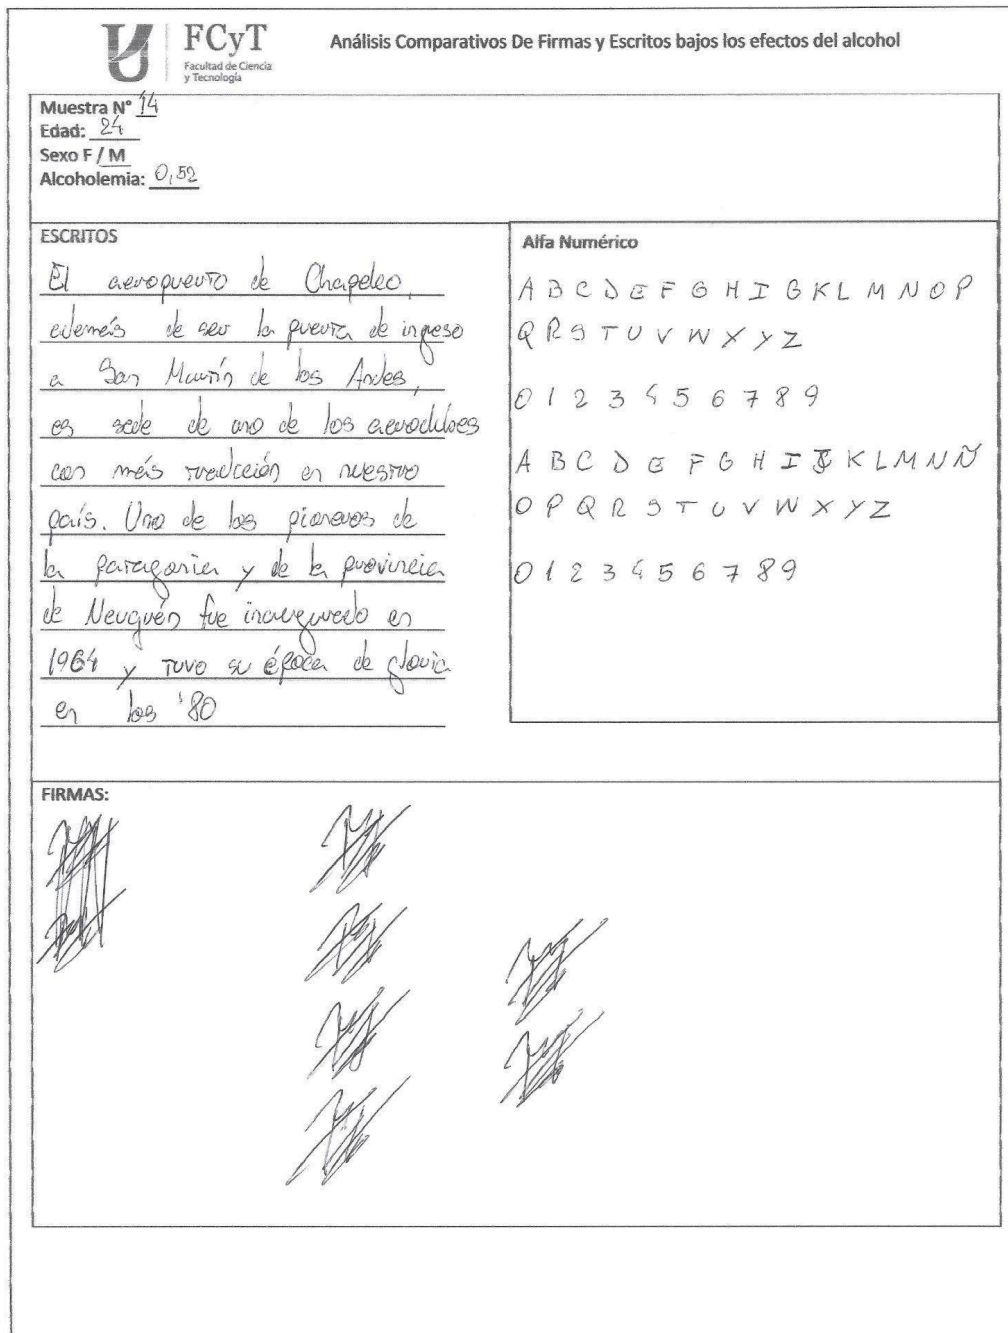 FCyT
Facultad de Ciencia
y Tecnología
Análisis Comparativos De Firmas y Escritos bajos los efectos del alcohol
Muestra N° 14
Edad: 24
Sexo F / M
Alcoholemia: 0,52
ESCRITOS
El aeropuerto de Chapelco,
además de ser la puerta de ingreso
a San Martín de los Andes,
es sede de uno de los
con más tradición en nuestro
país. Uno de los pioneros de
la patagonia y de la provincia
de Neuquén fue inaugurado en
1964 y tuvo su época de gloria
en los '80
Alfa Numérico
A B C D E F G H I G K L M N O P
Q R S T U V W X Y Z
0 1 2 3 4 5 6 7 8 9
A B C D E F G H I J K L M N Ñ
O P Q R S T U V W X Y Z
0 1 2 3 4 5 6 7 8 9
FIRMAS: